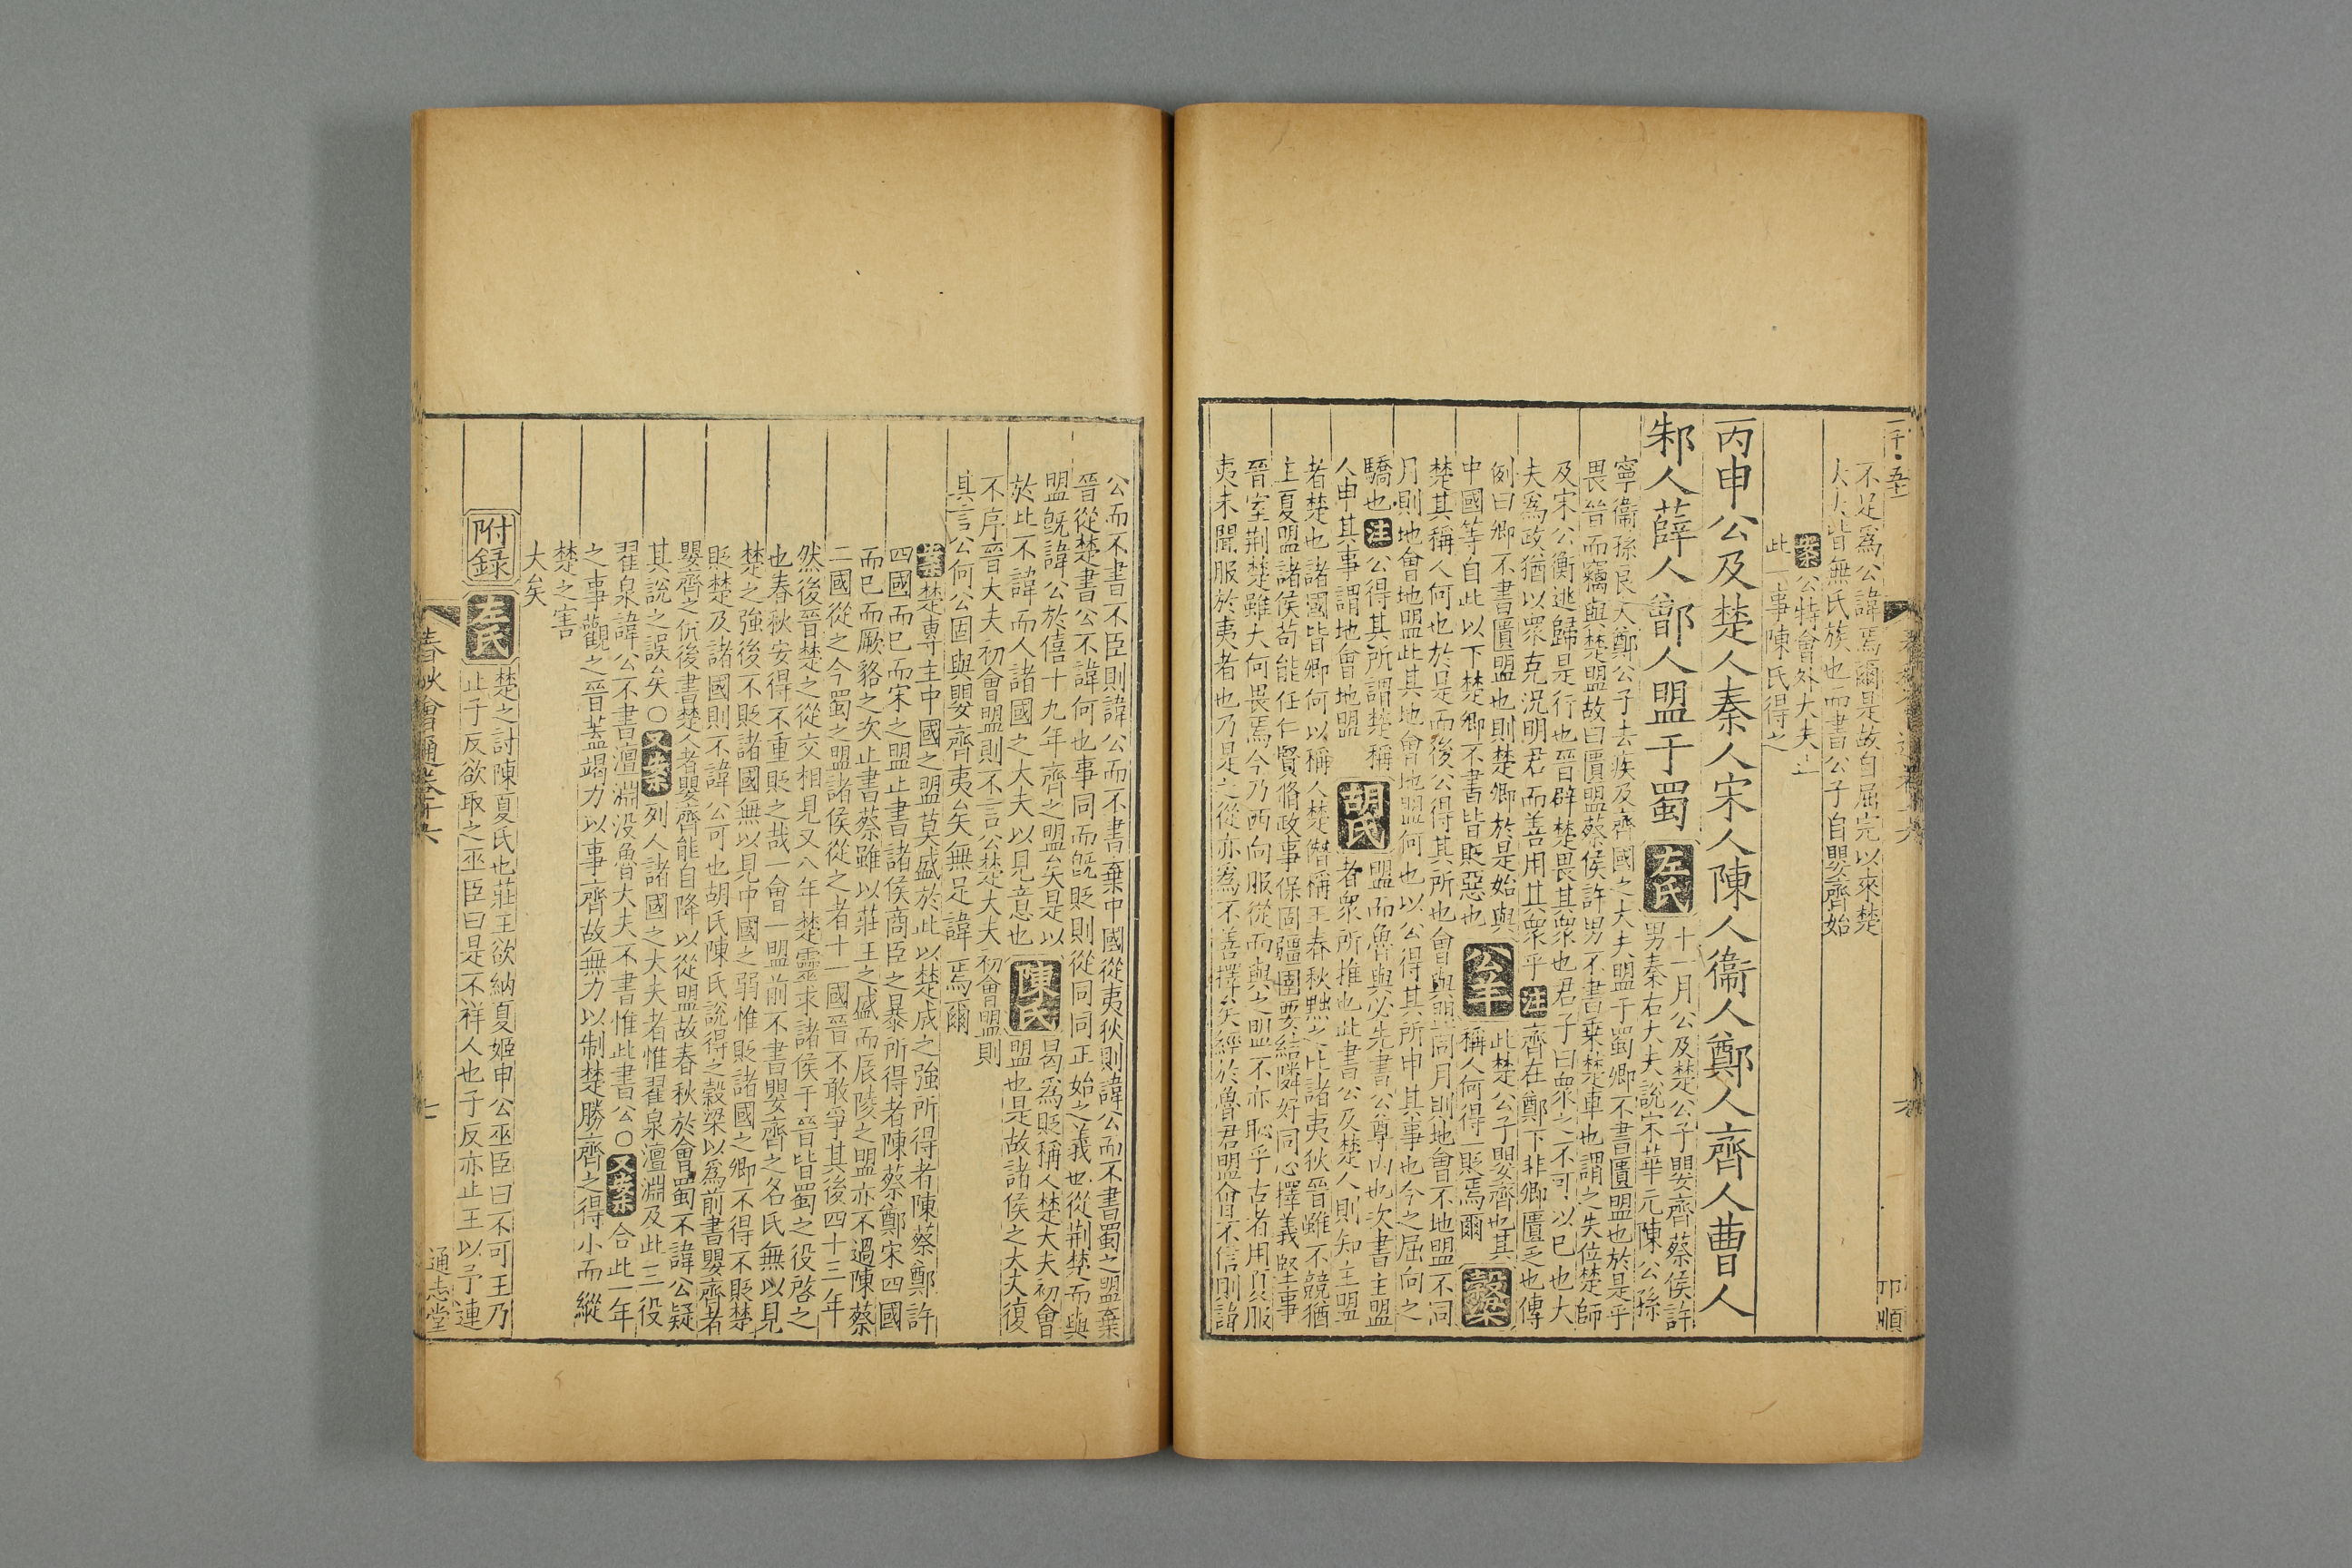 不足爲公諱焉爾是故自屈完以來楚
大夫皆無氏族也而書公子自嬰齊始
案公特會外大夫止
此一事陳氏得之
丙申公及楚人秦人宋人陳人衞人鄭人齊人曹人
邾人薛人鄫人盟于蜀
左氏
十一月公及楚公子嬰齊蔡侯許
男秦右大夫說宋華元陳公孫
寧衞孫良夫鄭公子去疾及齊國之大夫盟于蜀卿不書匱盟也於是乎
畏晉而竊與楚盟故曰匱盟蔡侯許男不書乗楚車也謂之失位楚師
及宋公衡逃歸是行也晉辟楚畏其衆也君子曰衆之不可以已也大
夫爲政猶以衆克況明君而善用其衆乎注齊在鄭下非卿匱乏也傳
例曰卿不書匱盟也則楚卿於是始與
中國等自此以下楚卿不書皆貶惡也
公羊
此楚公子嬰齊也其
稱人何得一貶焉爾
穀梁
楚其稱人何也於是而後公得其所也會與盟同月則地會不地盟不同
月則地會地盟此其地會地盟何也以公得其所申其事也今之屈向之
驕也注公得其所謂楚稱
人申其事謂地會地盟
胡氏
盟而魯與必先書公尊內也次書主盟
者衆所推也此書公及楚人則知主盟
者楚也諸國皆卿何以稱人楚僭稱王春秋黜之比諸夷狄晉雖不競猶
主夏盟諸侯苟能任仁賢脩政事保固疆圉要結隣好同心擇義堅事
晉室荆楚雖大何畏焉今乃西向服從而與之盟不亦恥乎古者用夏服
夷未聞服於夷者也乃是之從亦爲不善擇矣經於魯君盟會不信則諱
公而不書不臣則諱公而不書棄中國從夷狄則諱公而不書蜀之盟棄
晉從楚書公不諱何也事同而旣貶則從同同正始之義也從荆楚而與
盟旣諱公於僖十九年齊之盟矣是以
於此不諱而人諸國之大夫以見意也
陳氏
曷爲貶稱人楚大夫初會
盟也是故諸侯之大夫復
不序晉大夫初會盟則不言公楚大夫初會盟則
具言公何公固與嬰齊夷矣無足諱焉爾
案楚專主中國之盟莫盛於此以楚成之強所得者陳蔡鄭許
四國而已而宋之盟止書諸侯商臣之暴所得者陳蔡鄭宋四國
而已而厥貉之次止書蔡雖以莊王之盛而辰陵之盟亦不過陳蔡
二國從之今蜀之盟諸侯從之者十一國晉不敢爭其後四十三年
然後晉楚之從交相見又八年楚靈求諸侯于晉皆蜀之役啓之
也春秋安得不重貶之哉一會一盟前不書嬰齊之名氏無以見
楚之強後不貶諸國無以見中國之弱惟貶諸國之卿不得不貶楚
貶楚及諸國則不諱公可也胡氏陳氏說得之穀梁以爲前書嬰齊者
嬰齊之伉後書楚人者嬰齊能自降以從盟故春秋於會蜀不諱公疑
其說之誤矣○又案列人諸國之大夫者惟翟泉澶淵及此三役
翟泉諱公不書澶淵沒魯大夫不書惟此書公○又案合此一年
之事觀之晉蓋竭力以事齊故無力以制楚勝齊之得小而縱
楚之害
大矣
附録
左氏
楚之討陳夏氏也莊王欲納夏姬申公巫臣曰不可王乃
止子反欲取之巫臣曰是不祥人也子反亦止王以予連
春秋會通卷十六
七
通志堂